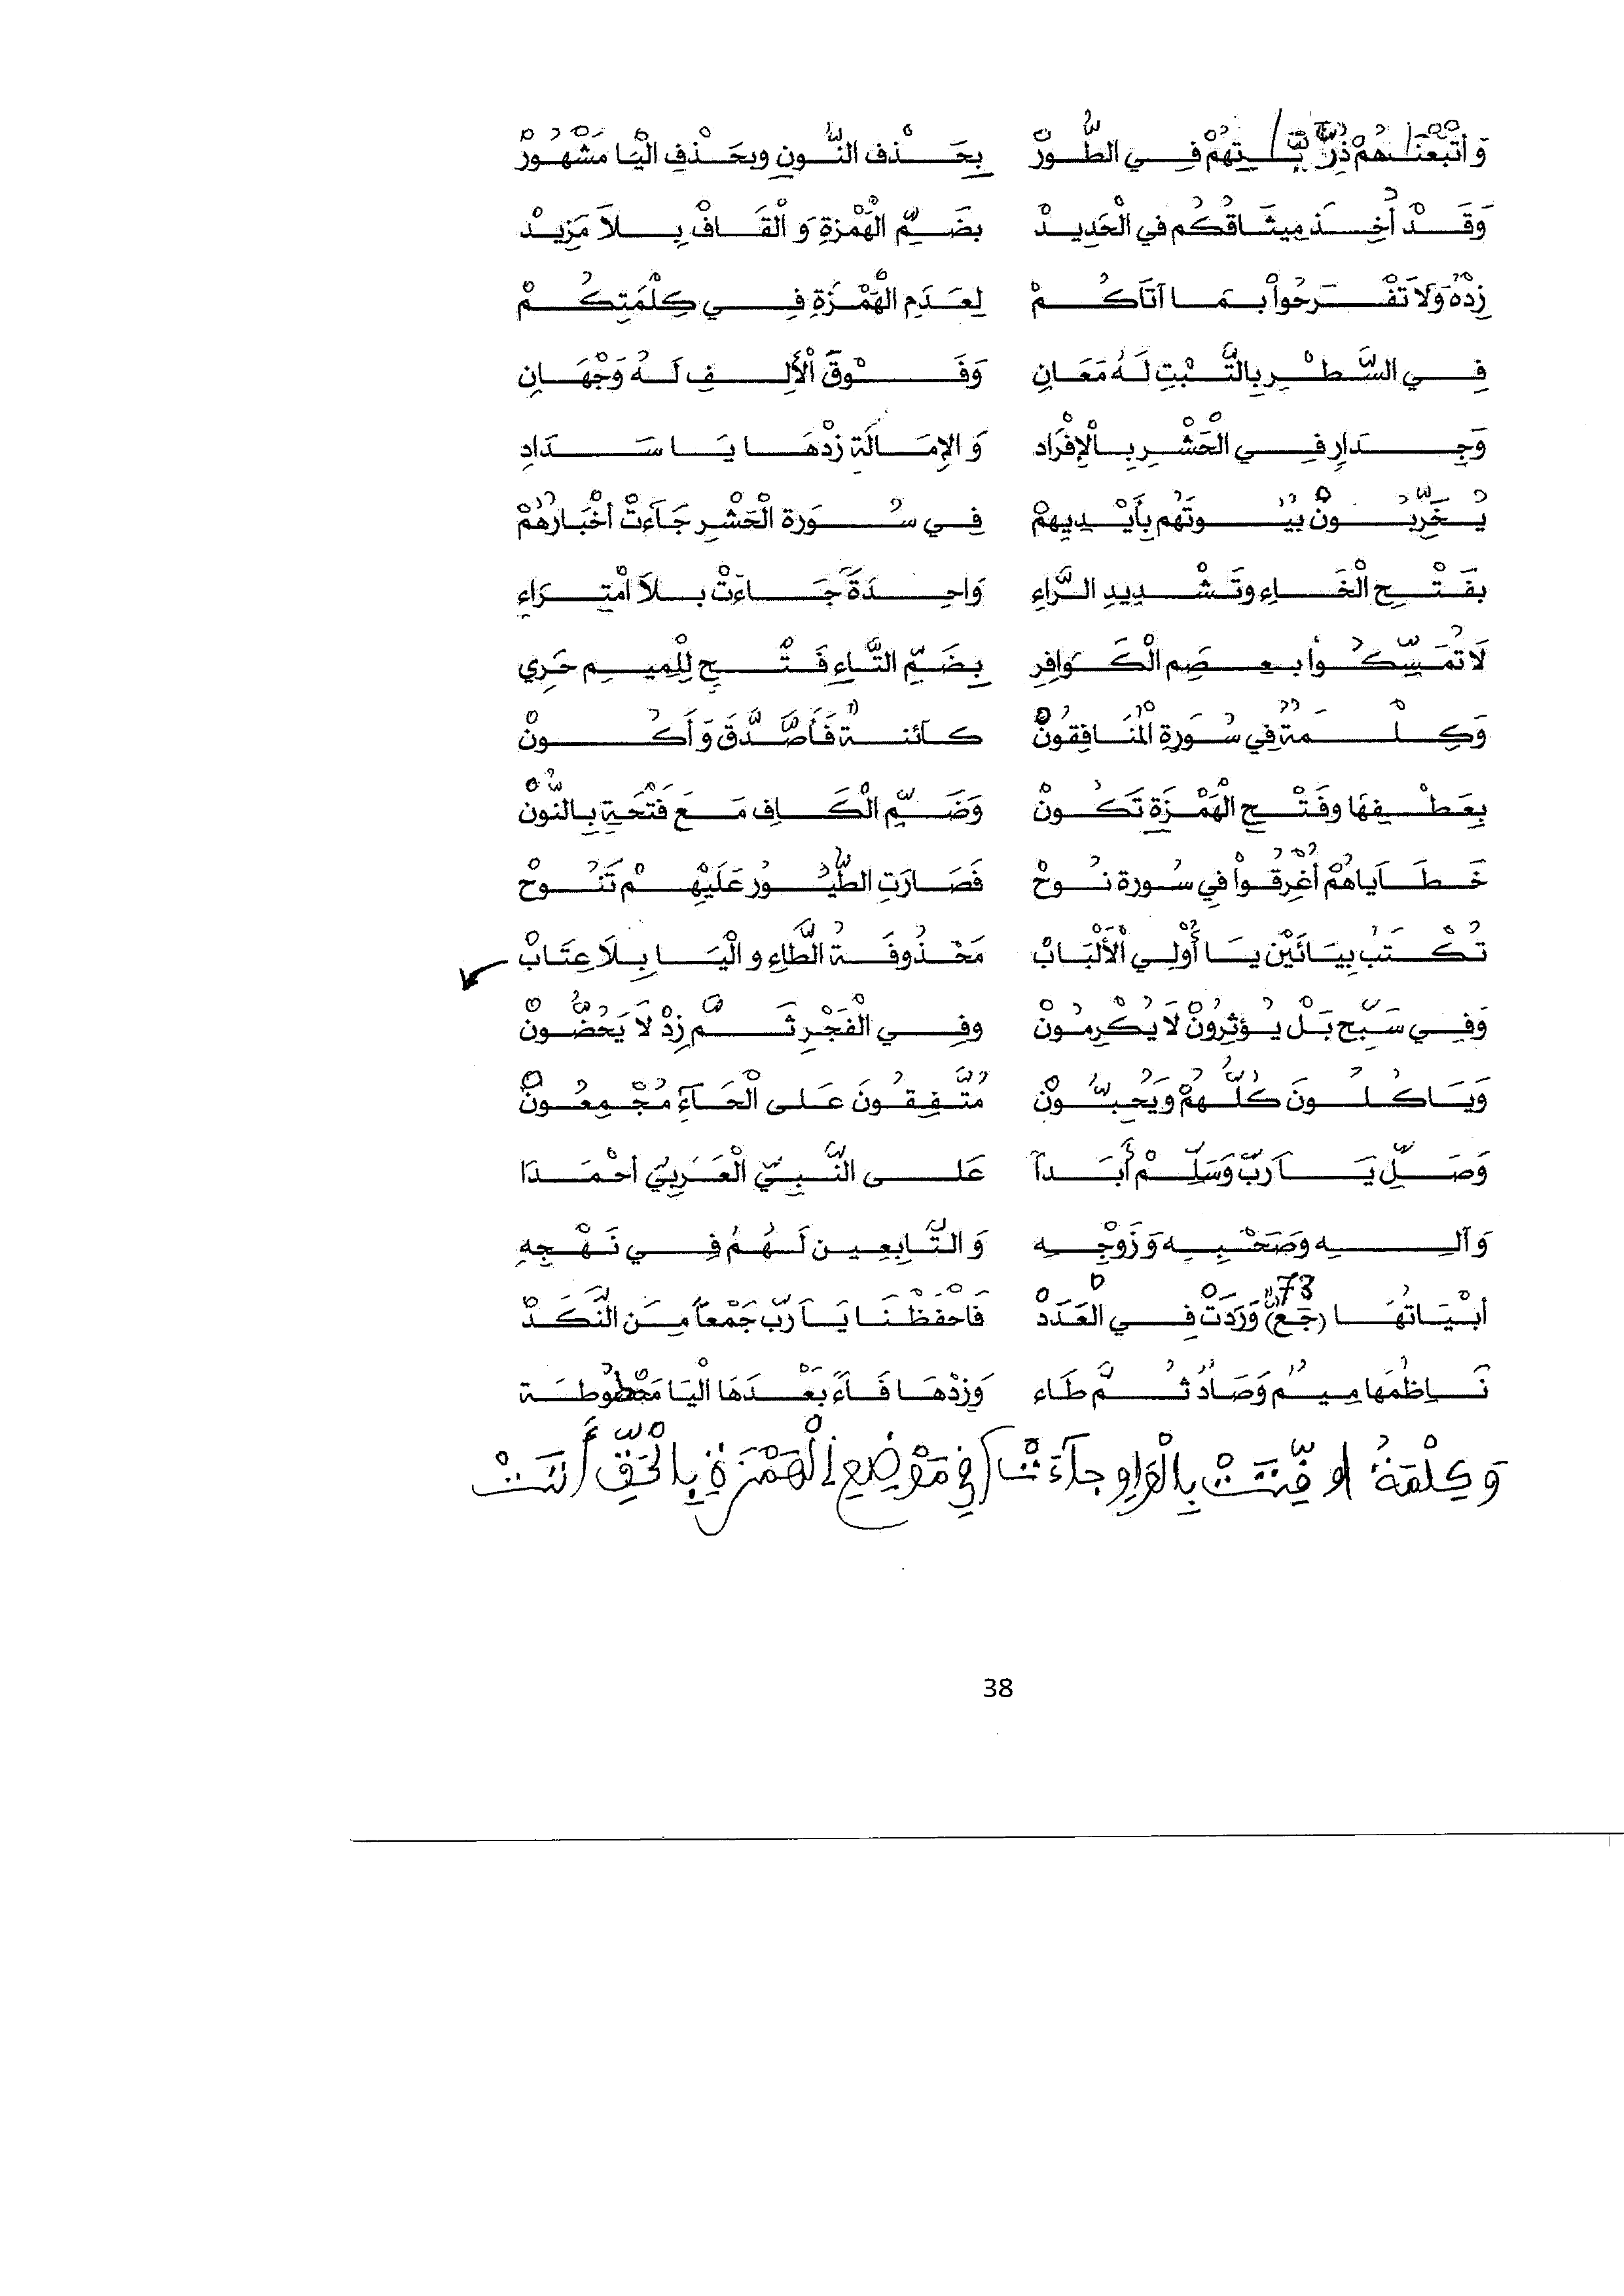 وَأَتْبَعْنَاهُمْ ذُرِّيَّاتِهُمْ فِي الطُّورْ بِحَذْفِ النُّونِ وبِحَذْفِ الْيَا مَشْهُورْ
وَقَدْ أُخِذَ مِيثَاقُكُم فِي الْحَدِيدْ بِضَمِّ الْهَمْزَةِ وَالْقَافْ بِلاَ مَزِيدْ
زِدْهُ وَلاَ تَفْرَحُواْ بِمَا آتَاكُمْ لِعَدَمِ الْهَمْزَةِ فِي كِلْمَتِكُمْ
فِي السَّطْرِ بِالثَّبْتِ لَهُ مَعَانِ وَفَوْقَ الْأَلِفِ لَهُ وَجْهَانِ
وَجِدَارِ فِي الْحَشْرِ بِالْإِفْرَادِ وَالإِمَالَةِ زِدْهَا يَا سَدَادِ
يُخَرِّبُونْ بُيُوتَهُم بِأَيْدِيهِمْ فِي سُورَةِ الْحَشْرِ جَاءَتْ أَخْبَارُهُمْ
بِفَتْحِ الْخَاءِ وتَشْدِيدِ الرَّاءِ وَاحِدَةً جَاءَتْ بِلاَ امْتِرَاءِ
لاَ تُمَسِّكُواْ بِعِصَمِ الْكَوَافِرِ بِضَمِّ التَّاءِ فَتْحٍ لِلْمِيمِ حَرِي
وَكِلْمَةٌ فِي سُورَةِ الْمُنَافِقُونْ كَائِنَةٌ فَأَصَّدَّقَ وَأَكُونْ
بِعَطْفِهَا وفَتْحِ الْهَمْزَةِ تَكُونْ وَضَمِّ الْكَافِ مَعَ فَتْحَةٍ بِالنُّونْ
خَطَايَاهُمْ أُغْرِقُواْ فِي سُورَةِ نُوحْ فَصَارَتِ الطُّيُورُ عَلَيْهِمْ تَنُوحْ
تُكْتَبُ بِيَائَيْنِ يَا أُوْلِي الْأَلْبَابْ مَحْذُوفَةُ الطَّاءِ وَالْيَا بِلاَ عِتَابْ
وَفِي سَبِّح بَلْ يُؤْثِرُونْ لاَ يُكْرِمُونْ وفِي الْفَجْرِ ثَمَّ زِدْ لاَ يَحُضُّونْ
وَيَاكُلُونَ كُلُّهُمْ وَيُحِبُّونْ مُتَّفِقُونَ عَلَى الْحَاءِ مُجْمِعُونْ
وَصَلِّ يَا رَبِّ وَسَلِّمْ أَبَداً عَلَى النَّبِيِّ الْعَرَبِيِّ أَحْمَدَا
وَآلِهِ وَصَحْبِهِ وَزَوْجِهِ وَالتَّابِعِينَ لَهُمُ فِي نَهْجِهِ
73
أَبْيَاتُهَا (جَعٌ) وَرَدَتْ فِي الْعَدَدْ فَاحْفَظْنَا يَا رَبِّ جَمْعاً مِنَ النَّكَدْ
نَاظِمُهَا مِيمٌ وَصَادٌ ثُمَّ طَاء وَزِدْهَا فَاءً بَعْدَهَا الْيَا مَحْطُوطَة
وَكِلْمَةُ اوقِّتَتْ بِالْوَاوِ جَاءَتْ / فِي مَوْضِعِ الْهَمْزَةِ بِالْحَقِّ أَتَتْ
38